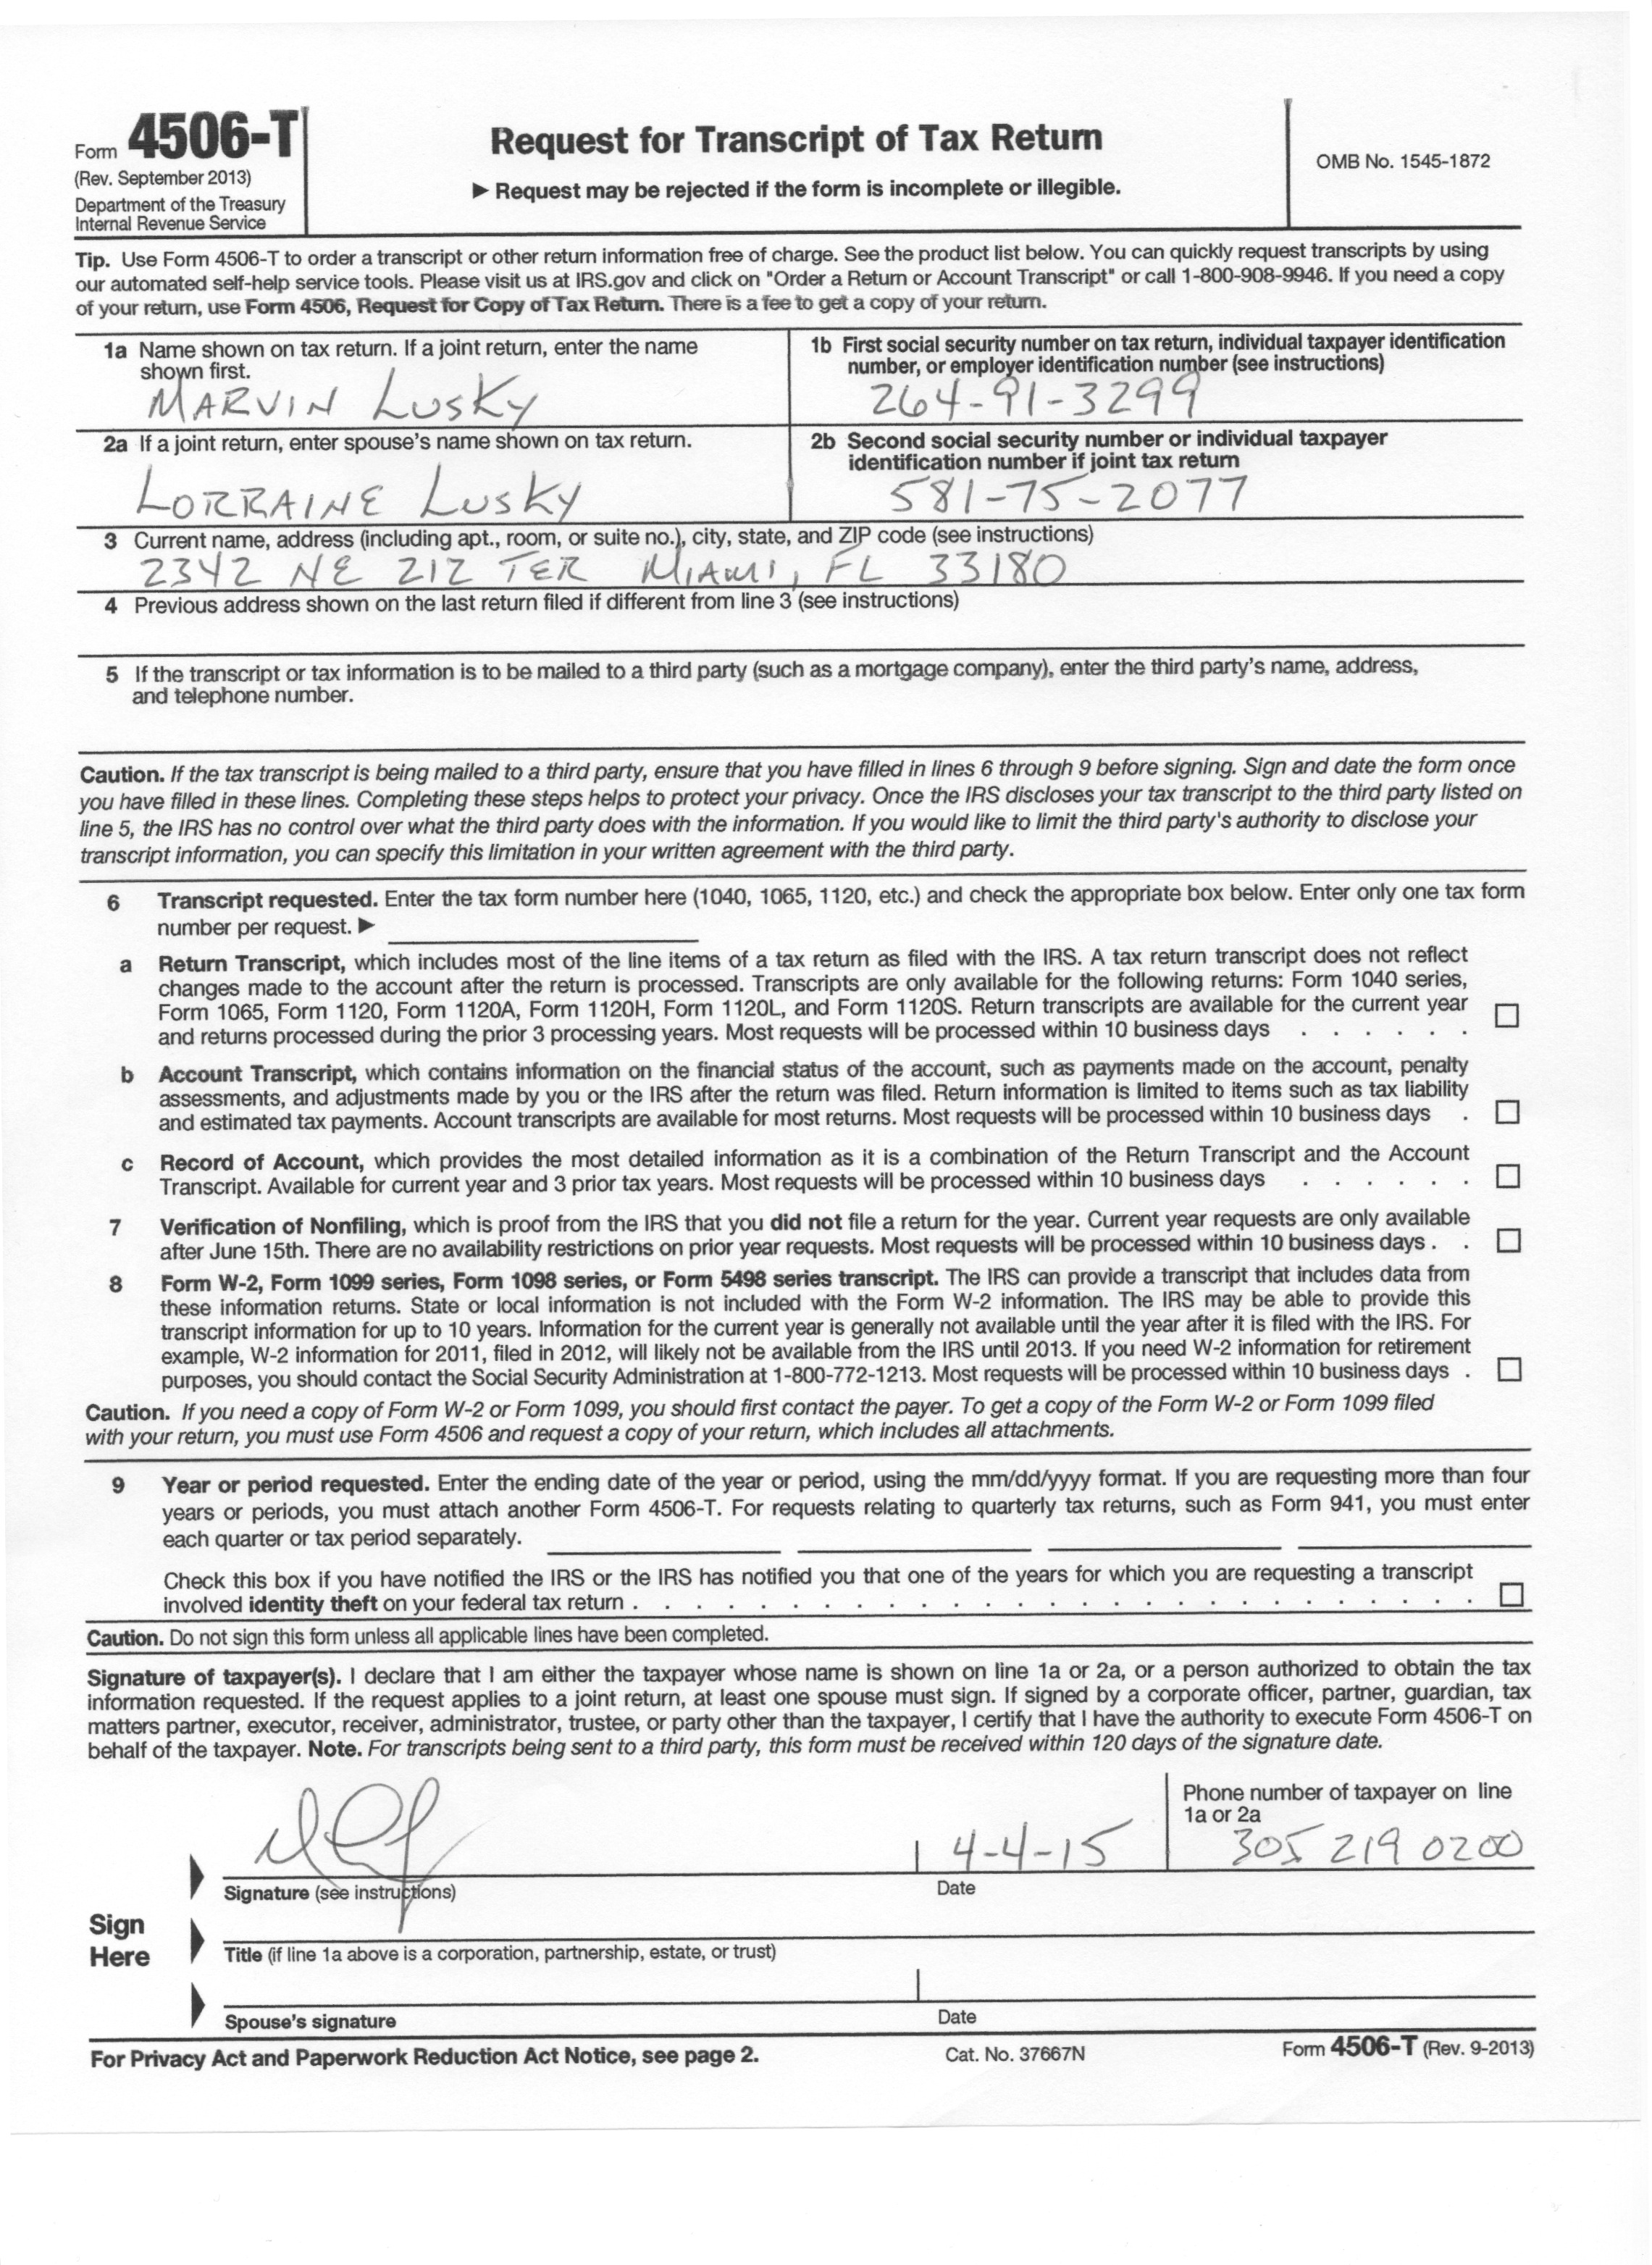 Form 4506-T
(Rev. September 2013)
Department of the Treasury
Internal Revenue Service
Request for Transcript of Tax Return
▶ Request may be rejected if the form is incomplete or illegible.
OMB No. 1545-1872
Tip. Use Form 4506-T to order a transcript or other return information free of charge. See the product list below. You can quickly request transcripts by using
our automated self-help service tools. Please visit us at IRS.gov and click on "Order a Return or Account Transcript" or call 1-800-908-9946. If you need a copy
of your return, use Form 4506, Request for Copy of Tax Return. There is a fee to get a copy of your return.
1a Name shown on tax return. If a joint return, enter the name
shown first.
MARVIN LUSKY
1b First social security number on tax return, individual taxpayer identification
number, or employer identification number (see instructions)
264-91-3299
2a If a joint return, enter spouse's name shown on tax return.
LORRAINE LUSKY
2b Second social security number or individual taxpayer
identification number if joint tax return
581-75-2077
3 Current name, address (including apt., room, or suite no.), city, state, and ZIP code (see instructions)
2342 NE 212 TER MIAMI, FL 33180
4 Previous address shown on the last return filed if different from line 3 (see instructions)
5 If the transcript or tax information is to be mailed to a third party (such as a mortgage company), enter the third party's name, address,
and telephone number.
Caution. If the tax transcript is being mailed to a third party, ensure that you have filled in lines 6 through 9 before signing. Sign and date the form once
you have filled in these lines. Completing these steps helps to protect your privacy. Once the IRS discloses your tax transcript to the third party listed on
line 5, the IRS has no control over what the third party does with the information. If you would like to limit the third party's authority to disclose your
transcript information, you can specify this limitation in your written agreement with the third party.
6 Transcript requested. Enter the tax form number here (1040, 1065, 1120, etc.) and check the appropriate box below. Enter only one tax form
number per request. ▶
a Return Transcript, which includes most of the line items of a tax return as filed with the IRS. A tax return transcript does not reflect
changes made to the account after the return is processed. Transcripts are only available for the following returns: Form 1040 series,
Form 1065, Form 1120, Form 1120A, Form 1120H, Form 1120L, and Form 1120S. Return transcripts are available for the current year
and returns processed during the prior 3 processing years. Most requests will be processed within 10 business days . . . . . .
b Account Transcript, which contains information on the financial status of the account, such as payments made on the account, penalty
assessments, and adjustments made by you or the IRS after the return was filed. Return information is limited to items such as tax liability
and estimated tax payments. Account transcripts are available for most returns. Most requests will be processed within 10 business days .
c Record of Account, which provides the most detailed information as it is a combination of the Return Transcript and the Account
Transcript. Available for current year and 3 prior tax years. Most requests will be processed within 10 business days . . . . . .
7 Verification of Nonfiling, which is proof from the IRS that you did not file a return for the year. Current year requests are only available
after June 15th. There are no availability restrictions on prior year requests. Most requests will be processed within 10 business days . .
8 Form W-2, Form 1099 series, Form 1098 series, or Form 5498 series transcript. The IRS can provide a transcript that includes data from
these information returns. State or local information is not included with the Form W-2 information. The IRS may be able to provide this
transcript information for up to 10 years. Information for the current year is generally not available until the year after it is filed with the IRS. For
example, W-2 information for 2011, filed in 2012, will likely not be available from the IRS until 2013. If you need W-2 information for retirement
purposes, you should contact the Social Security Administration at 1-800-772-1213. Most requests will be processed within 10 business days .
Caution. If you need a copy of Form W-2 or Form 1099, you should first contact the payer. To get a copy of the Form W-2 or Form 1099 filed
with your return, you must use Form 4506 and request a copy of your return, which includes all attachments.
9 Year or period requested. Enter the ending date of the year or period, using the mm/dd/yyyy format. If you are requesting more than four
years or periods, you must attach another Form 4506-T. For requests relating to quarterly tax returns, such as Form 941, you must enter
each quarter or tax period separately.
Check this box if you have notified the IRS or the IRS has notified you that one of the years for which you are requesting a transcript
involved identity theft on your federal tax return . . . . . . . . . . . . . . . . . . . . . . . . . . . .
Caution. Do not sign this form unless all applicable lines have been completed.
Signature of taxpayer(s). I declare that I am either the taxpayer whose name is shown on line 1a or 2a, or a person authorized to obtain the tax
information requested. If the request applies to a joint return, at least one spouse must sign. If signed by a corporate officer, partner, guardian, tax
matters partner, executor, receiver, administrator, trustee, or party other than the taxpayer, I certify that I have the authority to execute Form 4506-T on
behalf of the taxpayer. Note. For transcripts being sent to a third party, this form must be received within 120 days of the signature date.
Phone number of taxpayer on line
1a or 2a
4-4-15
305 219 0200
Signature (see instructions)
Date
Sign
Here
Title (if line 1a above is a corporation, partnership, estate, or trust)
Spouse's signature
Date
For Privacy Act and Paperwork Reduction Act Notice, see page 2.
Cat. No. 37667N
Form 4506-T (Rev. 9-2013)